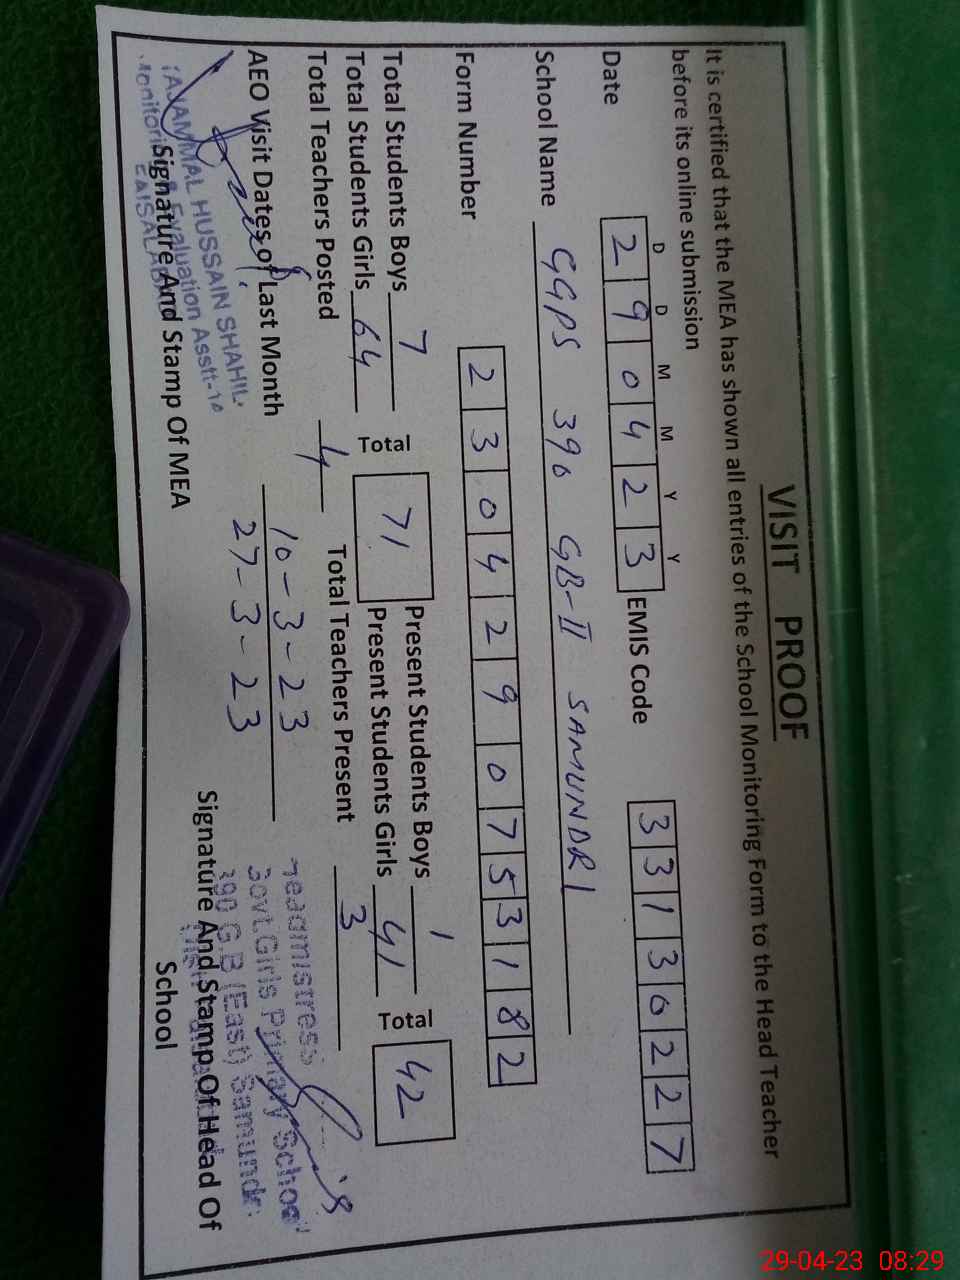 VISIT PROOF
It is certified that the MEA has shown all entries of the School Monitoring Form to the Head Teacher
before its online submission
D D M M Y Y
Date 2 9 0 4 2 3 EMIS Code 3 3 1 3 0 2 2 7
School Name GGPS 390 GB-II SAMUNDRI
Form Number 2 3 0 4 2 9 0 7 5 3 1 8 2
Total Students Boys 7 Present Students Boys 1
Total 71 Total 42
Total Students Girls 64 Present Students Girls 41
Total Teachers Posted 4 Total Teachers Present 3
AEO Visit Dates of Last Month 10-3-23
27-3-23
TAJAMMAL HUSSAIN SHAHIL
Monitoring & Evaluation Asstt-10
FAISALABAD
Signature And Stamp Of MEA
Headmistress
Govt. Girls Primary School
390 G.B (East) Samundri
Signature And Stamp Of Head Of
School
29-04-23 08:29